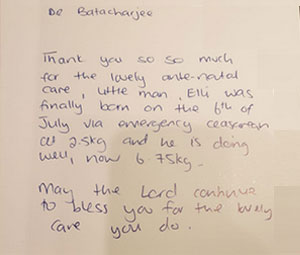 Dr Batacharjee
Thank you so so much
for the lovely ante-natal
care, little man, Elli was
finally born on the 6th of
July via emergency ceasarean
at 2.5kg and he is doing
well, now 6.75kg.
May the Lord continue
to bless you for the lovely
care you do.